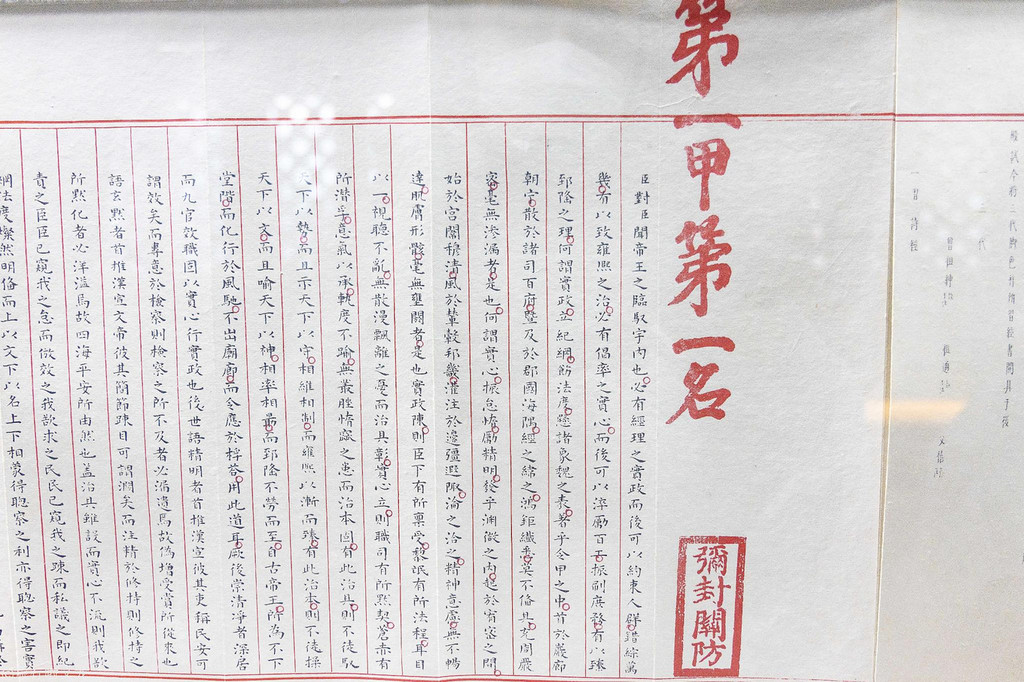 一曾習詩經
第一甲第一名
彌封關防
臣對臣聞帝王之臨馭宇內也必有經理之實政而後可以約束人群錯綜萬
幾有以致雍熙之治必有倡率之實心而後可以淬勵百工振刷庶務有以臻
郅隆之理何謂實政立紀綱飭法度懸諸象魏之表著乎令甲之中首於巖廊
朝宁散於諸司百府暨及於郡國海隅經之緯之鴻鉅纖悉莫不備具充周嚴
密毫無滲漏者是也何謂實心振怠惰勵精明發乎淵微之內起於宥密之間
始於宮闈穆清風於輦轂邦畿灌注於邊疆遐陬淪之洽之精神意慮無不暢
達肌膚形骸毫無壅閼者是也實政陳則臣下有所稟受黎氓有所法程耳目
以一視聽不亂無散漫飄離之憂而治具彰實心立則職司有所默契蒼赤有
所潛孚意氣以承軌度不踰無叢脞惰窳之患而治本固有此治具則不徒馭
天下以勢而且示天下以守相維相制而雍熙以漸而臻有此治本則不徒操
天下以文而且喻天下以神相率相勗而郅隆不勞而至自古帝王所為不下
堂階而化行於風馳不出廟廊而令應於桴答用此道耳厥後崇清淨者深居
而九官效職固以實心行實政也後世語精明者首推漢宣彼其吏稱民安可
謂效矣而專意於檢察則檢察之所不及者必漏遺焉故偽增受賞所從來也
語玄默者首推漢宣文帝彼其簡節疎目可謂闊矣而注精於修持則修持之
所默化者必洋溢焉故四海平安所由然也蓋治具雖設而實心不流則我欲
責之臣臣已窺我之怠而倣效之我欲求之民民已窺我之疎而私議之即紀
綱法度燦然明備而上以文下以名上下相蒙得聰察之利亦得聰察之害實